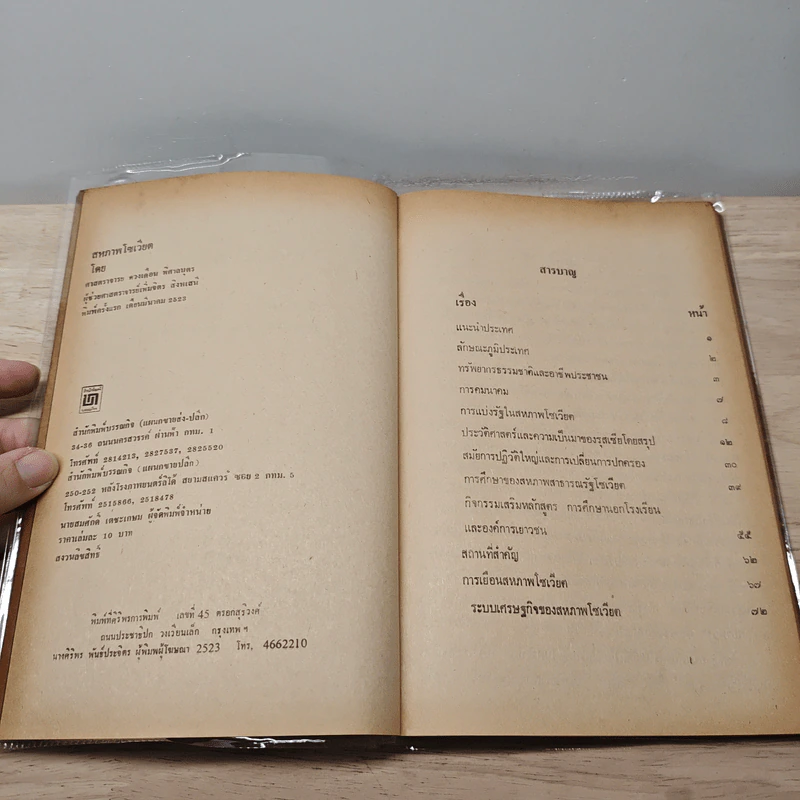 สหภาพโซเวียต
โดย
ศาสตราจารย์ ดวงเดือน พิศาลบุตร
ผู้ช่วยศาสตราจารย์เพิ่มจิตร สิงหเสนี
พิมพ์ครั้งแรก เดือนมีนาคม 2523
สำนักพิมพ์บรรณกิจ (แผนกขายส่ง-ปลีก)
34-36 ถนนนครสวรรค์ ผ่านฟ้า กทม. 1
โทรศัพท์ 2814213, 2827537, 2825520
สำนักพิมพ์บรรณกิจ (แผนกขายปลีก)
250-252 หลังโรงภาพยนตร์ลิโด้ สยามสแควร์ ซอย 2 กทม. 5
โทรศัพท์ 2515866, 2518478
นายสมศักดิ์ เตชะเกษม ผู้จัดพิมพ์จำหน่าย
ราคาเล่มละ 10 บาท
สงวนลิขสิทธิ์
พิมพ์ที่ศิริพรการพิมพ์ เลขที่ 45 ตรอกสุริวงค์
ถนนประชาธิปก วงเวียนเล็ก กรุงเทพ ฯ
นางศิริพร พันธ์ประจิตร ผู้พิมพ์ผู้โฆษณา 2523 โทร. 4662210
สารบาญ
เรื่อง หน้า
แนะนำประเทศ ๑
ลักษณะภูมิประเทศ ๒
ทรัพยากรธรรมชาติและอาชีพประชาชน ๓
การคมนาคม ๗
การแบ่งรัฐในสหภาพโซเวียต ๘
ประวัติศาสตร์และความเป็นมาของรุสเซียโดยสรุป ๑๒
สมัยการปฏิวัติใหญ่และการเปลี่ยนการปกครอง ๓๐
การศึกษาของสหภาพสาธารณรัฐโซเวียต ๓๙
กิจกรรมเสริมหลักสูตร การศึกษานอกโรงเรียน
และองค์การเยาวชน ๕๕
สถานที่สำคัญ ๖๒
การเยือนสหภาพโซเวียต ๖๗
ระบบเศรษฐกิจของสหภาพโซเวียต ๗๒